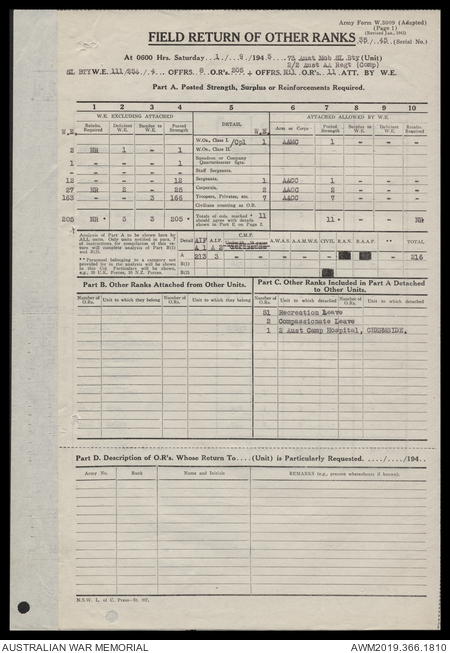 Army Form W.3009 (Adapted)
(Page 1)
(Revised Jan., 1943)
FIELD RETURN OF OTHER RANKS 35/45 (Serial No.)
At 0600 Hrs. Saturday 1 / 9 /1945 73 Aust Mob SL Bty (Unit)
2/2 Aust AA Regt (Comp)
SL BTY W.E. 111/554/4 OFFRS. 8 O.R's. 205 + OFFRS. Nil O.R's. 11 ATT. BY W.E.
Part A. Posted Strength, Surplus or Reinforcements Required.
1 2 3 4 5 6 7 8 9 10
W.E. EXCLUDING ATTACHED DETAIL ATTACHED ALLOWED BY W.E.
W.E. Reinfs. Required Deficient W.E. Surplus to W.E. Posted Strength W.E. Arm or Corps Posted Strength Surplus to W.E. Deficient W.E. Reinfs. Required
W.Os., Class I. /Cpl 1 AAMC 1 - - -
2 NR 1 - 1 W.Os., Class II.
1 - - - 1 Squadron or Company Quartermaster Sgts.
Staff Sergeants
12 - - - 12 Sergeants 1 AACC 1 - - -
27 NR 2 - 25 Corporals 2 AACC 2
163 - - 3 166 Troopers, Privates, etc. 7 AACC 7
Civilians counting as O.R.
205 NR * 3 3 205 * Totals of cols. marked * 11 should agree with details shown in Part E on Page 2. 11 * NR
Analysis of Part A to be shown here by ALL units.
DETAIL AIF A.I.F. C.M.F. A.W.A.S. A.A.M.W.S. CIVIL R.A.N. R.A.A.F. ** TOTAL
A 213 3 - - - - - 216
B(1)
B(2)
Part B. Other Ranks Attached from Other Units.
Number of O.Rs. Unit to which they belong Number of O.Rs. Unit to which they belong
Part C. Other Ranks Included in Part A Detached to Other Units.
Number of O.Rs. Unit to which detached Number of O.Rs. Unit to which detached
51 Recreation Leave
2 Compassionate Leave
1 2 Aust Camp Hospital, CHERMSIDE.
Part D. Description of O.R's. Whose Return To....(Unit) is Particularly Requested. ..../..../194..
Army No. Rank Name and Initials REMARKS (e.g., present whereabouts if known).
AUSTRALIAN WAR MEMORIAL AWM2019.366.1810